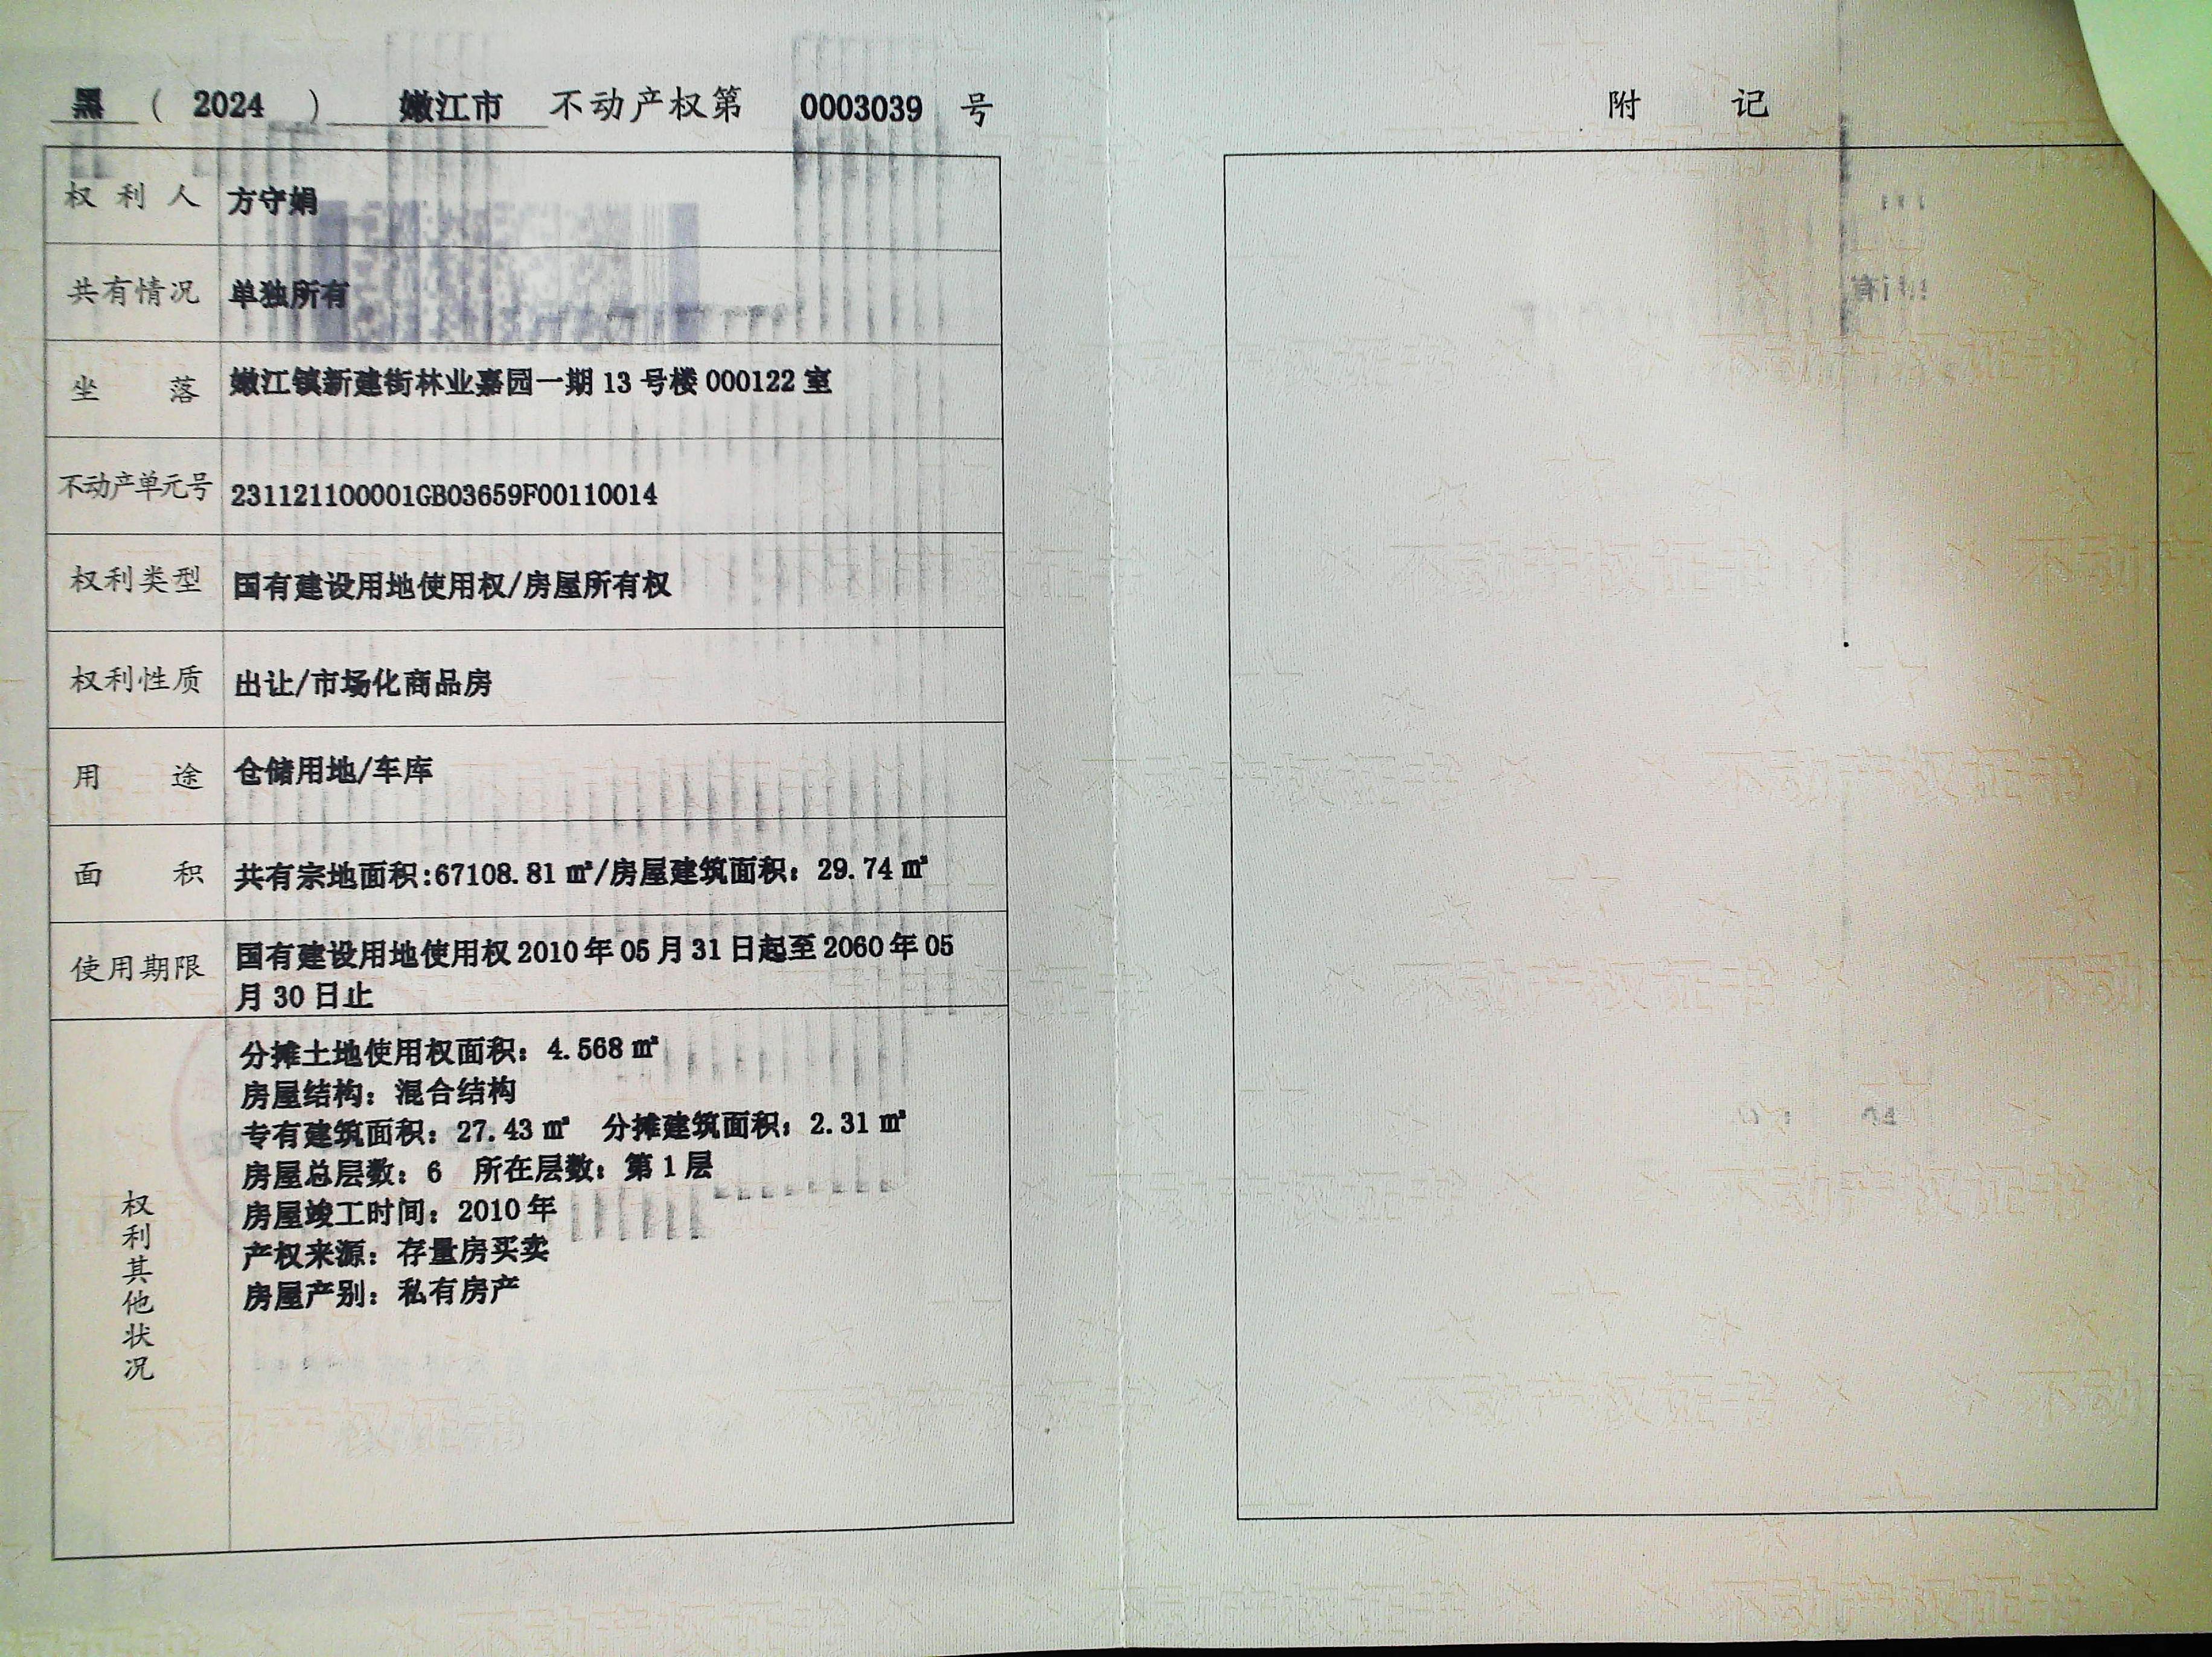 黑 ( 2024 ) 嫩江市 不动产权第 0003039 号
权利人 方守娟
共有情况 单独所有
坐落 嫩江镇新建街林业嘉园一期 13 号楼 000122 室
不动产单元号 231121100001GB03659F00110014
权利类型 国有建设用地使用权/房屋所有权
权利性质 出让/市场化商品房
用途 仓储用地/车库
面积 共有宗地面积:67108.81 ㎡/房屋建筑面积: 29.74 ㎡
使用期限 国有建设用地使用权 2010 年 05 月 31 日起至 2060 年 05
月 30 日止
权利其他状况
分摊土地使用权面积: 4.568 ㎡
房屋结构: 混合结构
专有建筑面积: 27.43 ㎡ 分摊建筑面积: 2.31 ㎡
房屋总层数: 6 所在层数: 第 1 层
房屋竣工时间: 2010 年
产权来源: 存量房买卖
房屋产别: 私有房产
附记